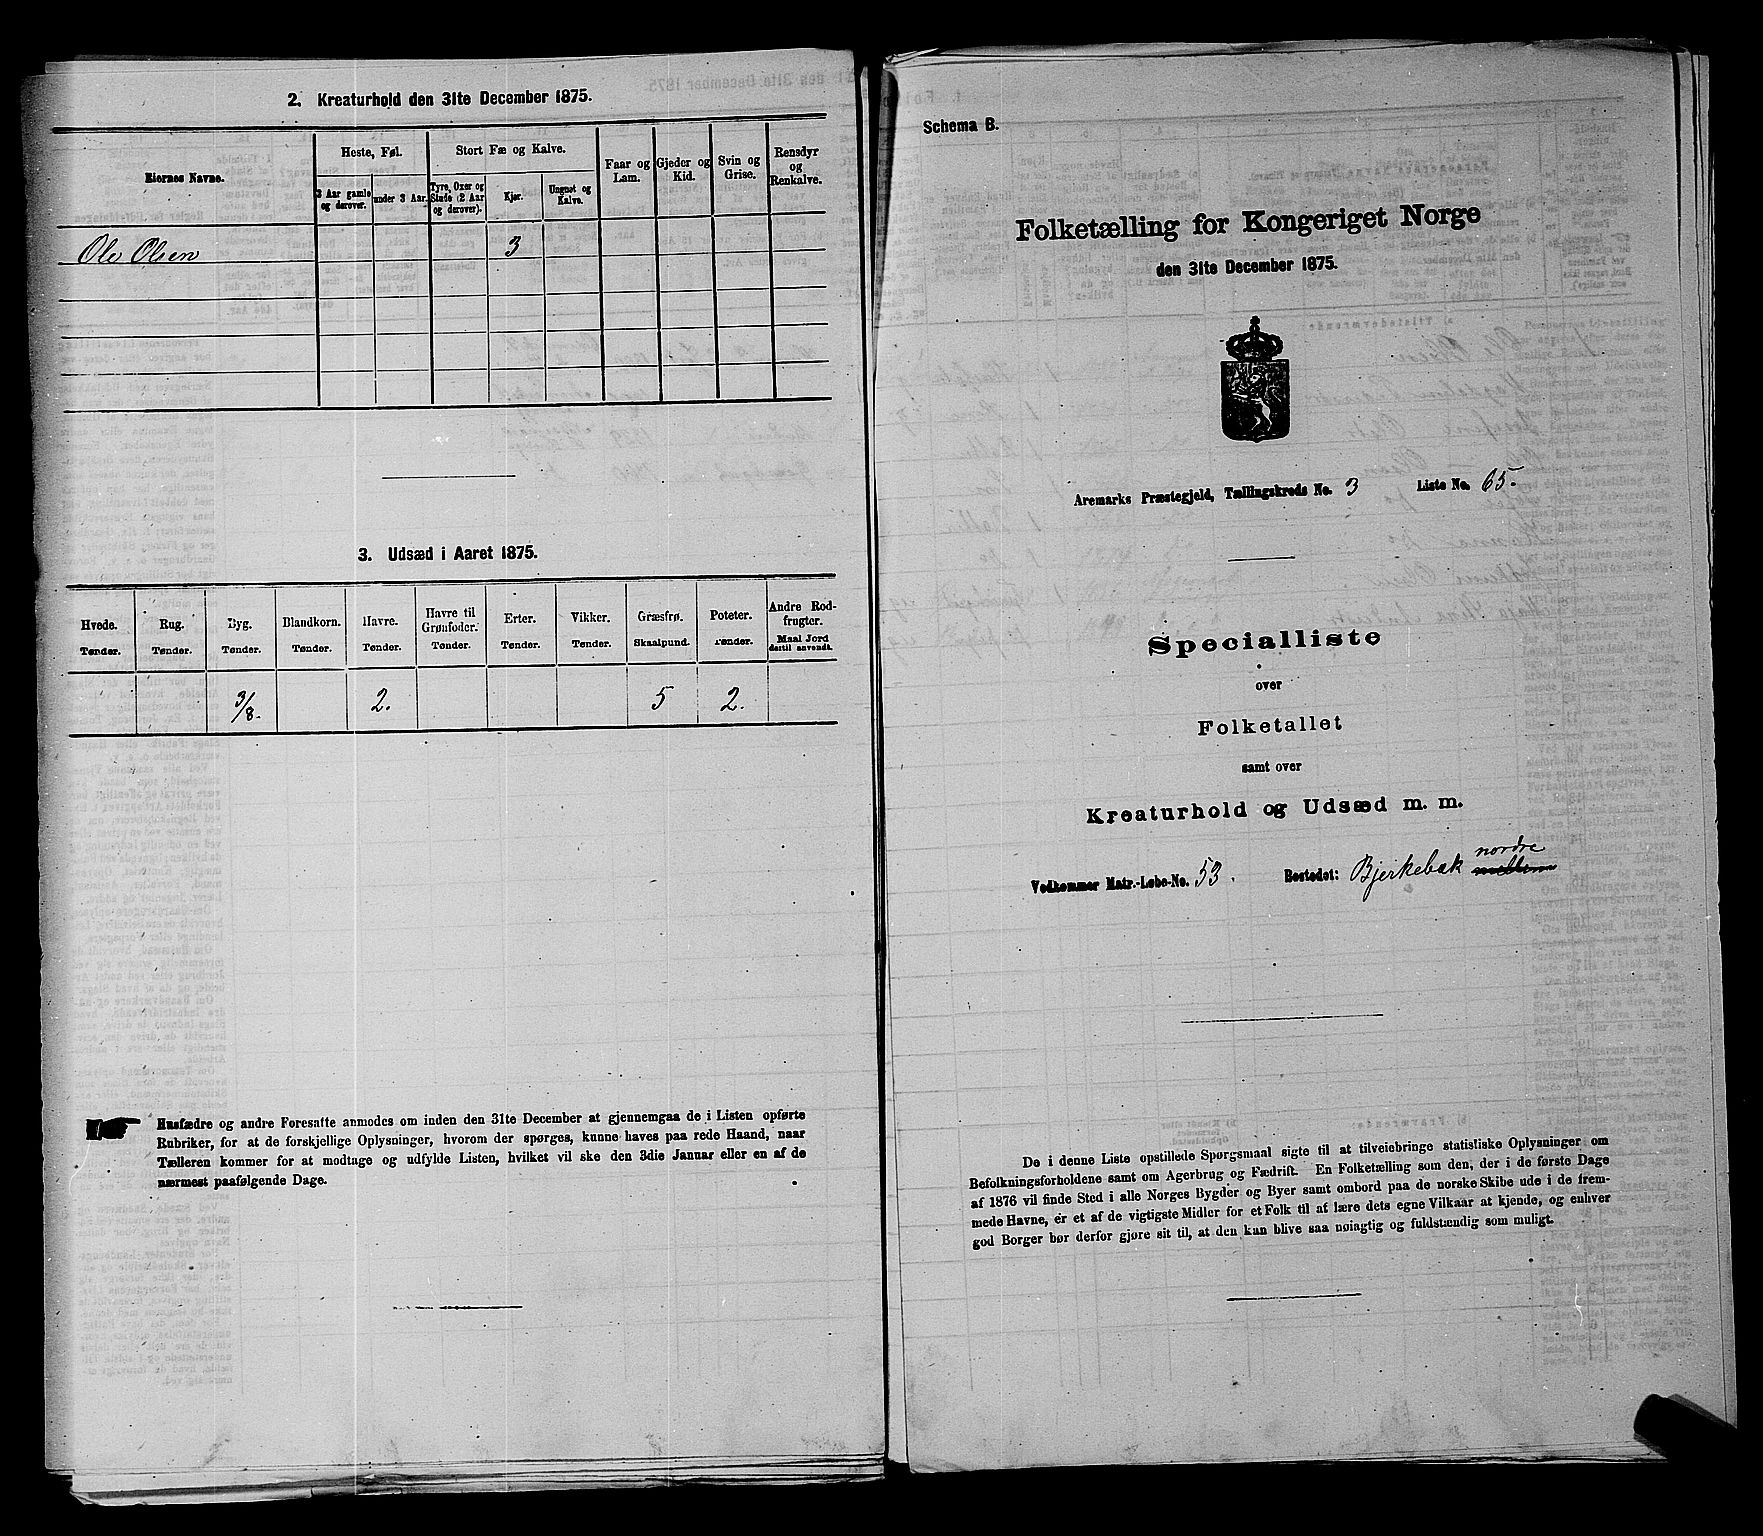 2. Kreaturhold den 31te December 1875.
Eiernes Navne.
Heste, Føl.
Stort Fæ og Kalve.
Faar og Lam.
Gjeder og Kid.
Svin og Grise.
Rensdyr og Renkalve.
3 Aar gamle og derover.
under 3 Aar.
Tyre, Oxer og Stude (2 Aar og derover).
Kjør.
Ungnøt og Kalve.
Ole Olsen 3
3. Udsæd i Aaret 1875.
Hvede. Rug. Byg. Blandkorn. Havre. Havre til Grønfoder. Erter. Vikker. Græsfrø. Poteter. Andre Rodfrugter.
Tønder. Tønder. Tønder. Tønder. Tønder. Tønder. Tønder. Tønder. Skaalpund. Tønder. Maal Jord dertil anvendt.
3/8. 2. 5 2.
Husfædre og andre Foresatte anmodes om inden den 31te December at gjennemgaa de i Listen opførte
Rubriker, for at de forskjellige Oplysninger, hvorom der spørges, kunne haves paa rede Haand, naar
Tælleren kommer for at modtage og udfylde Listen, hvilket vil ske den 3die Januar eller en af de
nærmest paafølgende Dage.
Schema B.
Folketælling for Kongeriget Norge
den 31te December 1875.
Aremarks Præstegjeld, Tællingskreds No. 3 Liste No. 65.
Specialliste
over
Folketallet
samt over
Kreaturhold og Udsæd m. m.
nordre
Vedkommer Matr.-Løbe-No. 53. Bostedet: Bjerkebæk mellem
De i denne Liste opstillede Spørgsmaal sigte til at tilveiebringe statistiske Oplysninger om
Befolkningsforholdene samt om Agerbrug og Fædrift. En Folketælling som den, der i de første Dage
af 1876 vil finde Sted i alle Norges Bygder og Byer samt ombord paa de norske Skibe ude i de frem-
mede Havne, er et af de vigtigste Midler for et Folk til at lære dets egne Vilkaar at kjende, og enhver
god Borger bør derfor gjøre sit til, at den kan blive saa nøiagtig og fuldstændig som muligt.